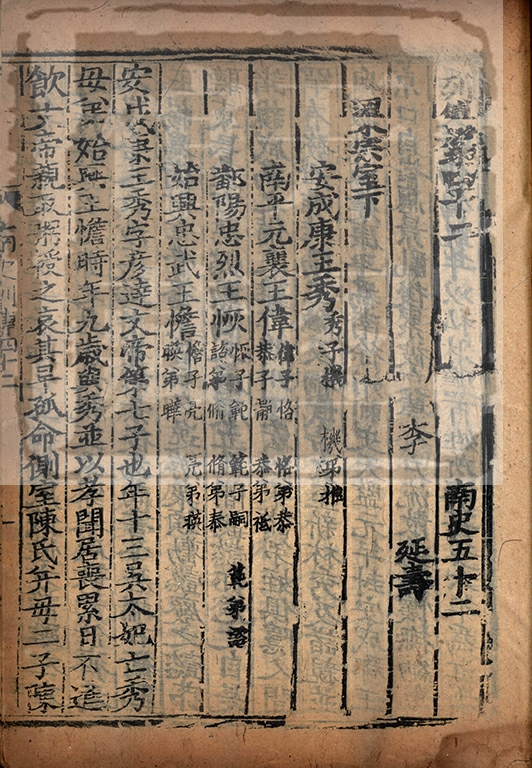 列傳第四十二 南史五十二
李 延壽
梁宗室下
安成康王秀 秀子機 機弟推
南平元襄王偉 偉子恪 恪弟恭 恭子靜 恭弟祗
鄱陽忠烈王恢 恢子範 範子嗣 範弟諮 諮弟脩 脩弟泰
始興忠武王憺 憺子亮 亮弟暎 暎弟曄
安成康王秀字彥達文帝第七子也年十三吳太妃亡秀
母弟始興王憺時年九歲與秀並以孝聞居喪累日不進
飲文帝親取粥授之哀其早孤命側室陳氏并母二子陳